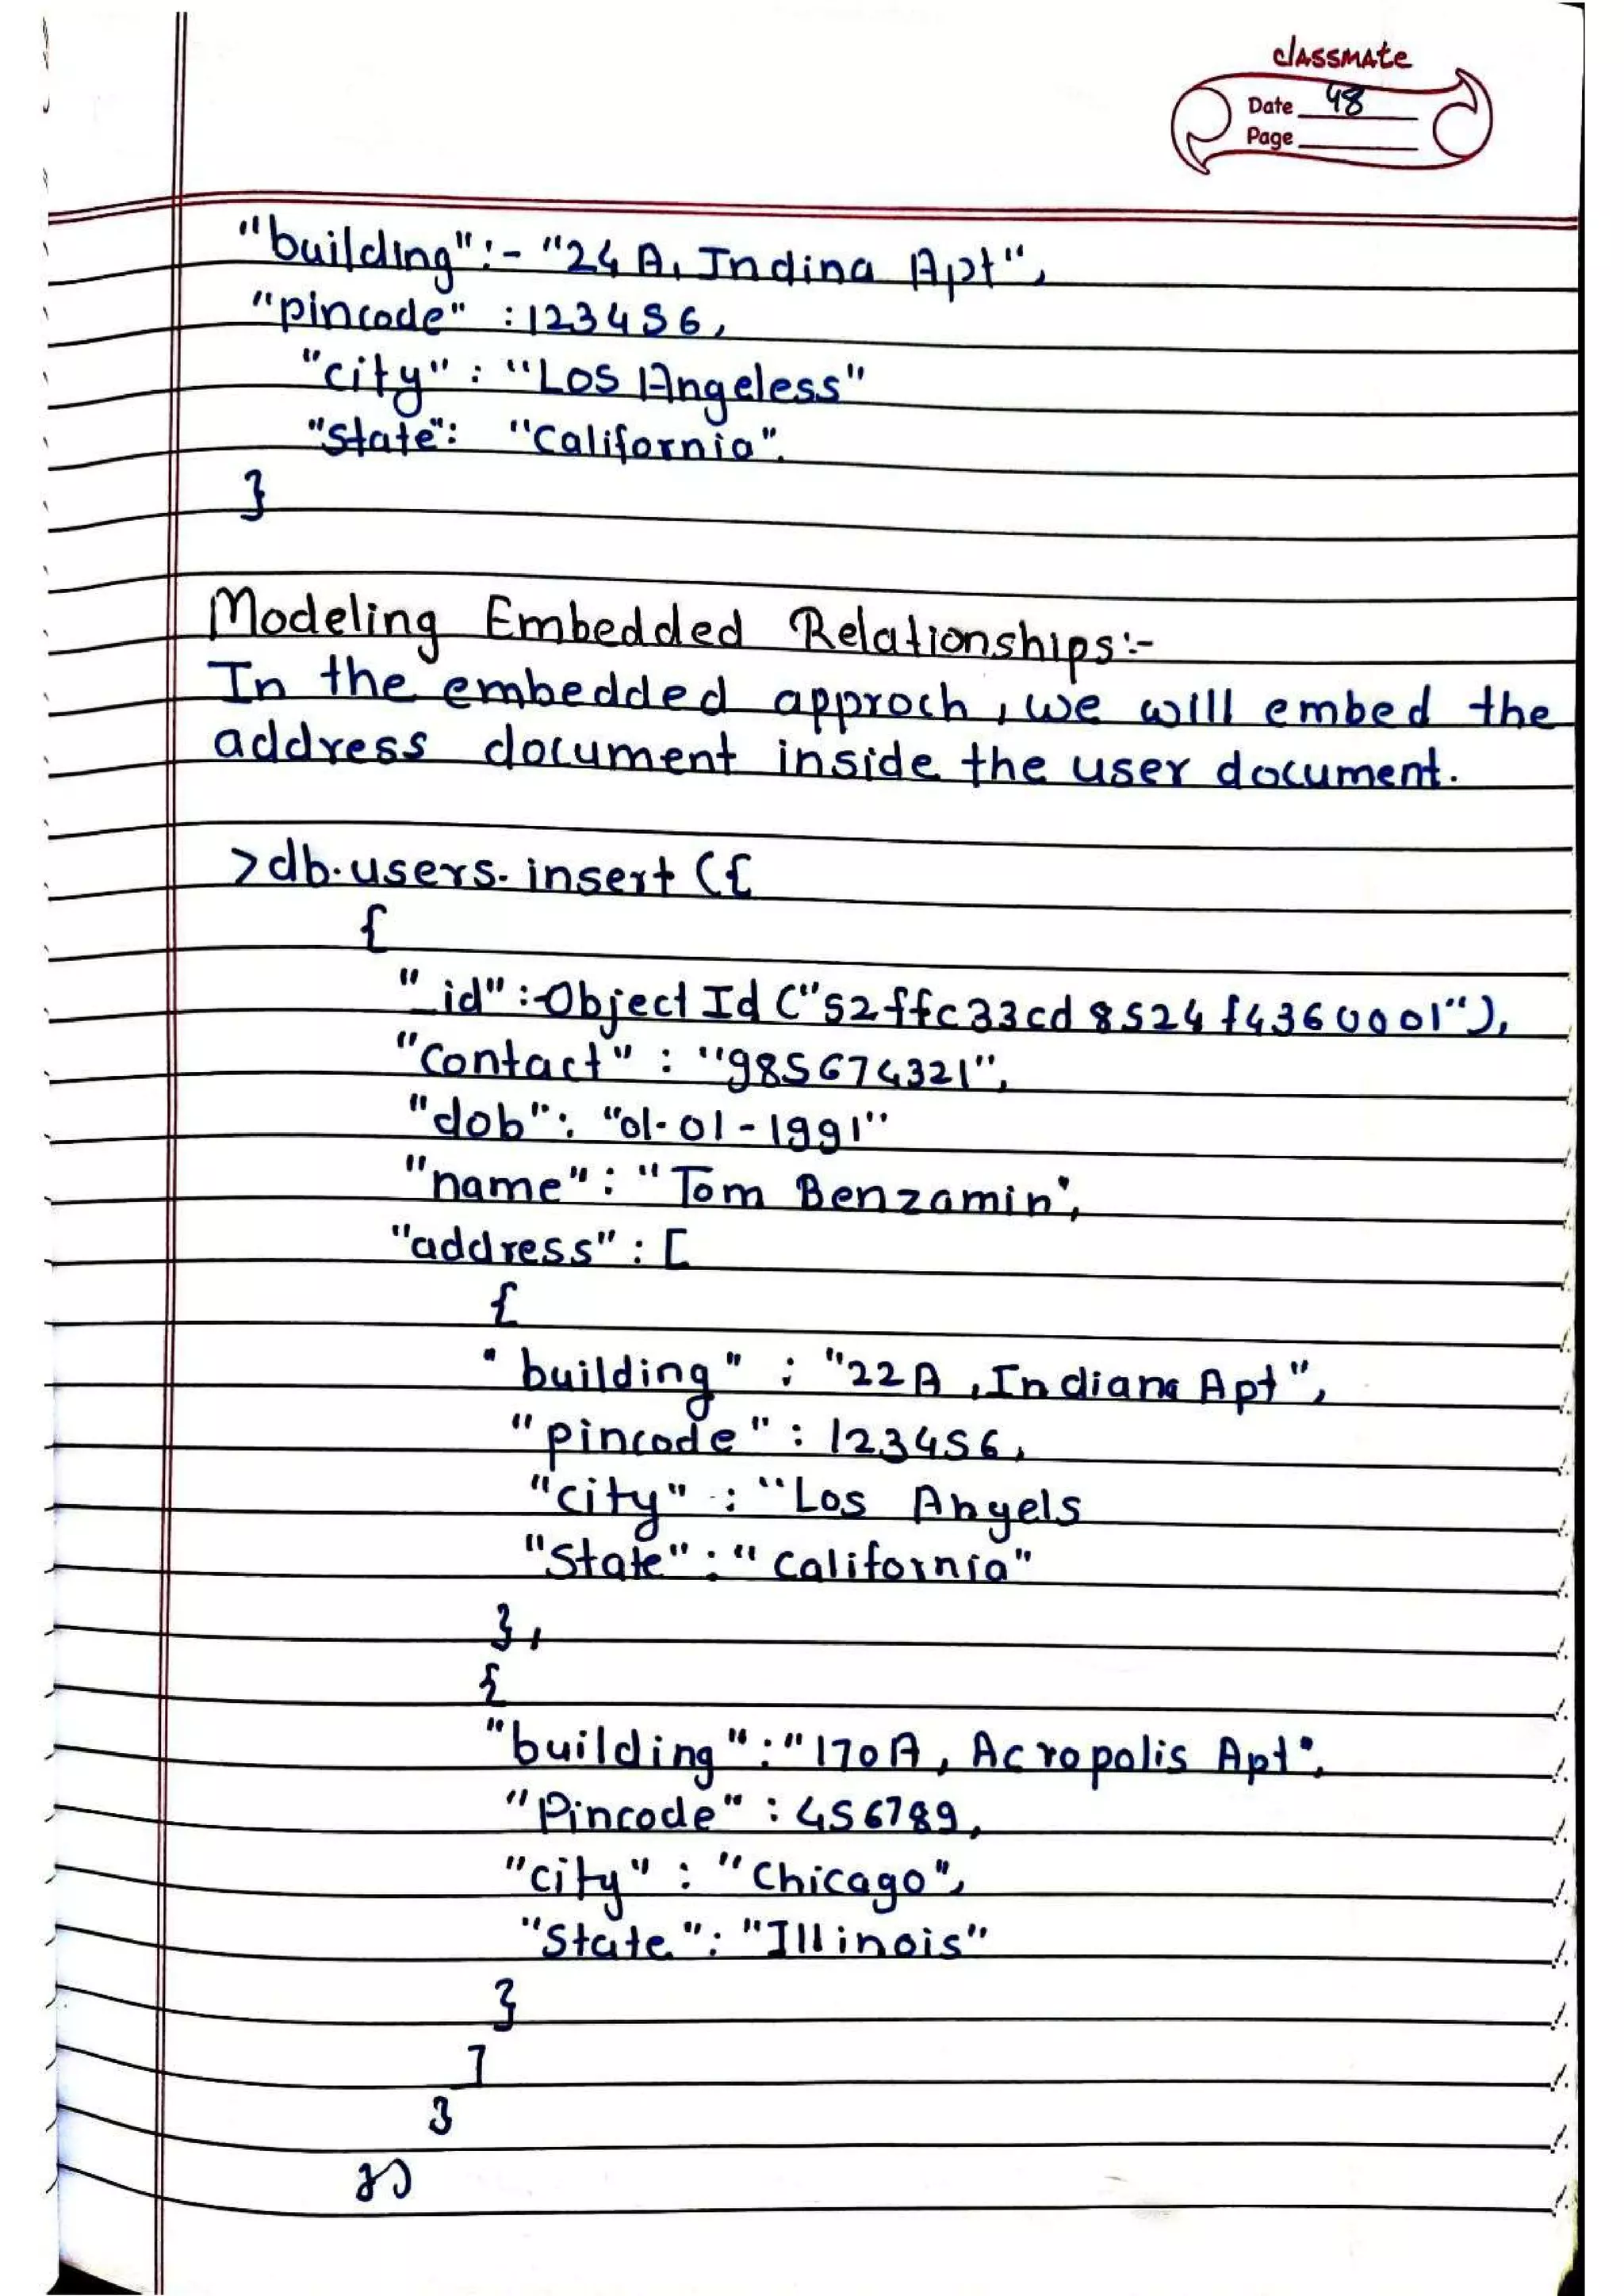 classmate
Date 48
Page
"building":- "24 A, Indina Apt",
"pincode" : 123456,
"city" : "Los Angeless"
"State": "California".
}
Modeling Embedded Relationships:-
In the embedded approch, we will embed the
address document inside the user document.
>db.users.insert ({
{
"_id":-Object Id ("52ffc33cd8524f4360001"),
"contact" : "985674321",
"dob": "01-01-1991"
"name": "Tom Benzamin",
"address" : [
{
"building" : "22A, Indiana Apt",
"pincode" : 123456,
"city" : "Los Angels
"State" : "California"
},
{
"building" : "170A, Acropolis Apt",
"Pincode" : 456789,
"city" : "Chicago",
"State" : "Illinois"
}
]
}
})